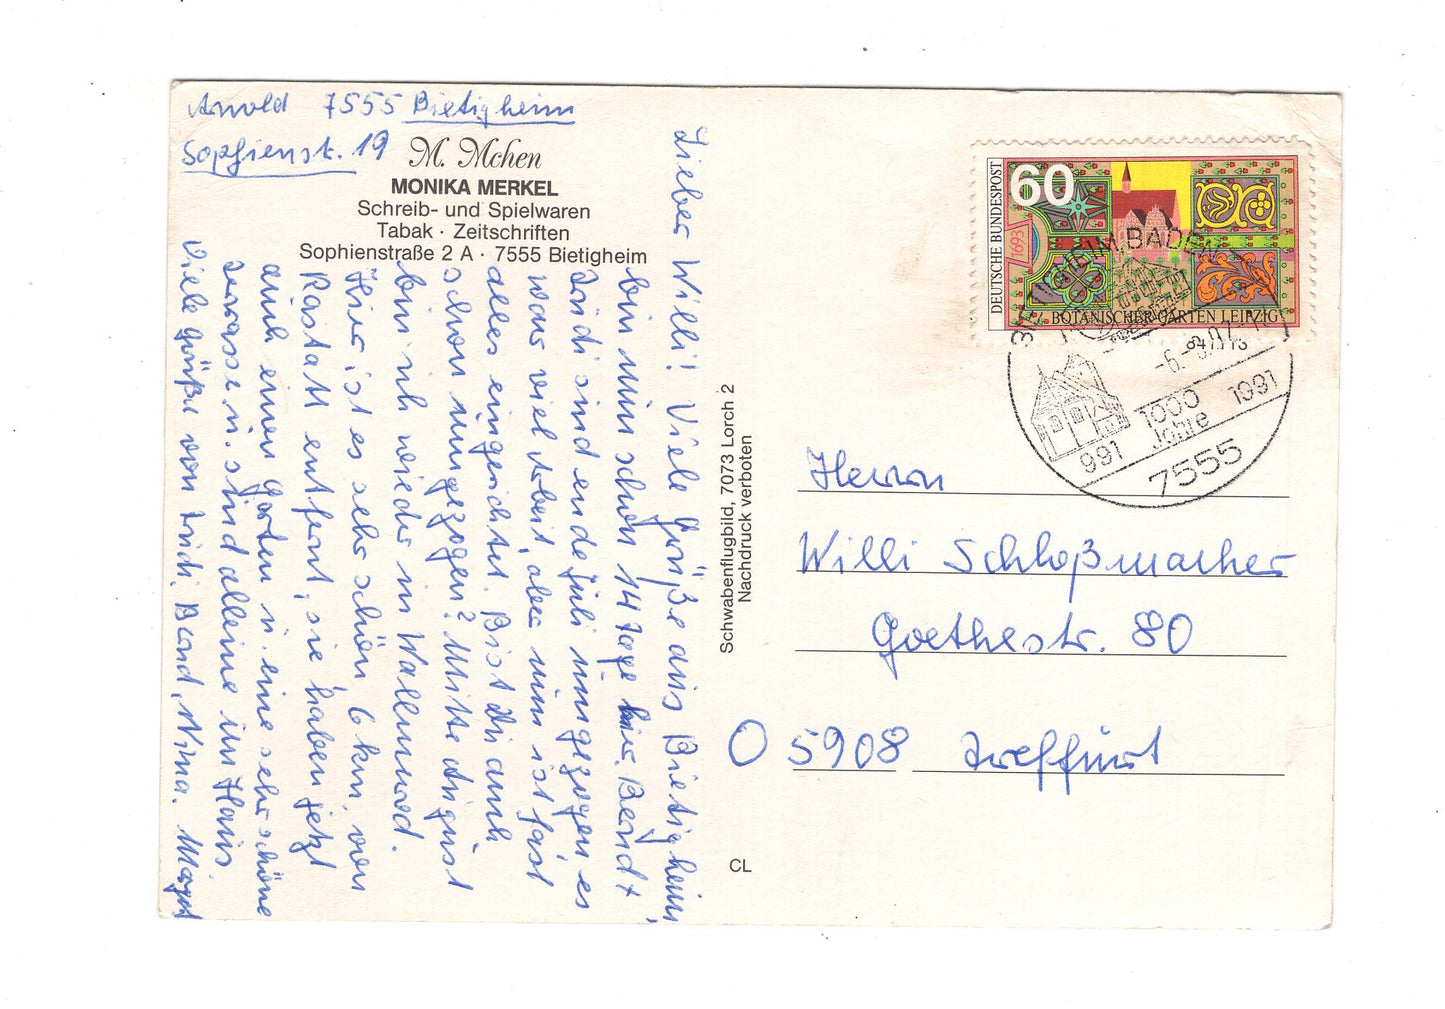 Arnold 7555 Bietigheim
Sopfienst. 19
M. Mohen
MONIKA MERKEL
Schreib- und Spielwaren
Tabak · Zeitschriften
Sophienstraße 2 A · 7555 Bietigheim
Lieber Willi! Viele Grüße aus Bietigheim
bin nun schon 14 Tage hier. Bernd +
Tridi sind ende Juli umgezogen, es
war viel Arbeit, aber nun ist fast
alles eingerichtet. Bist du auch
schon umgezogen? Mitte August
bin ich wieder in
Hier ist es sehr schön, 6 km von
Rastatt entfernt, sie haben jetzt
auch einen Garten u. eine sehr schöne
Terrasse u. sind alleine im Haus.
Viele Grüße von Tridi, Bernd, Nina. Margot
Schwabenflugbild, 7073 Lorch 2
Nachdruck verboten
CL
DEUTSCHE BUNDESPOST
60
1693
BOTANISCHER GARTEN LEIPZIG
BADEN
991
1000
Jahre
1991
7555
Herrn
Willi Schloßmacher
Goethestr. 80
O 5908 Treffurt